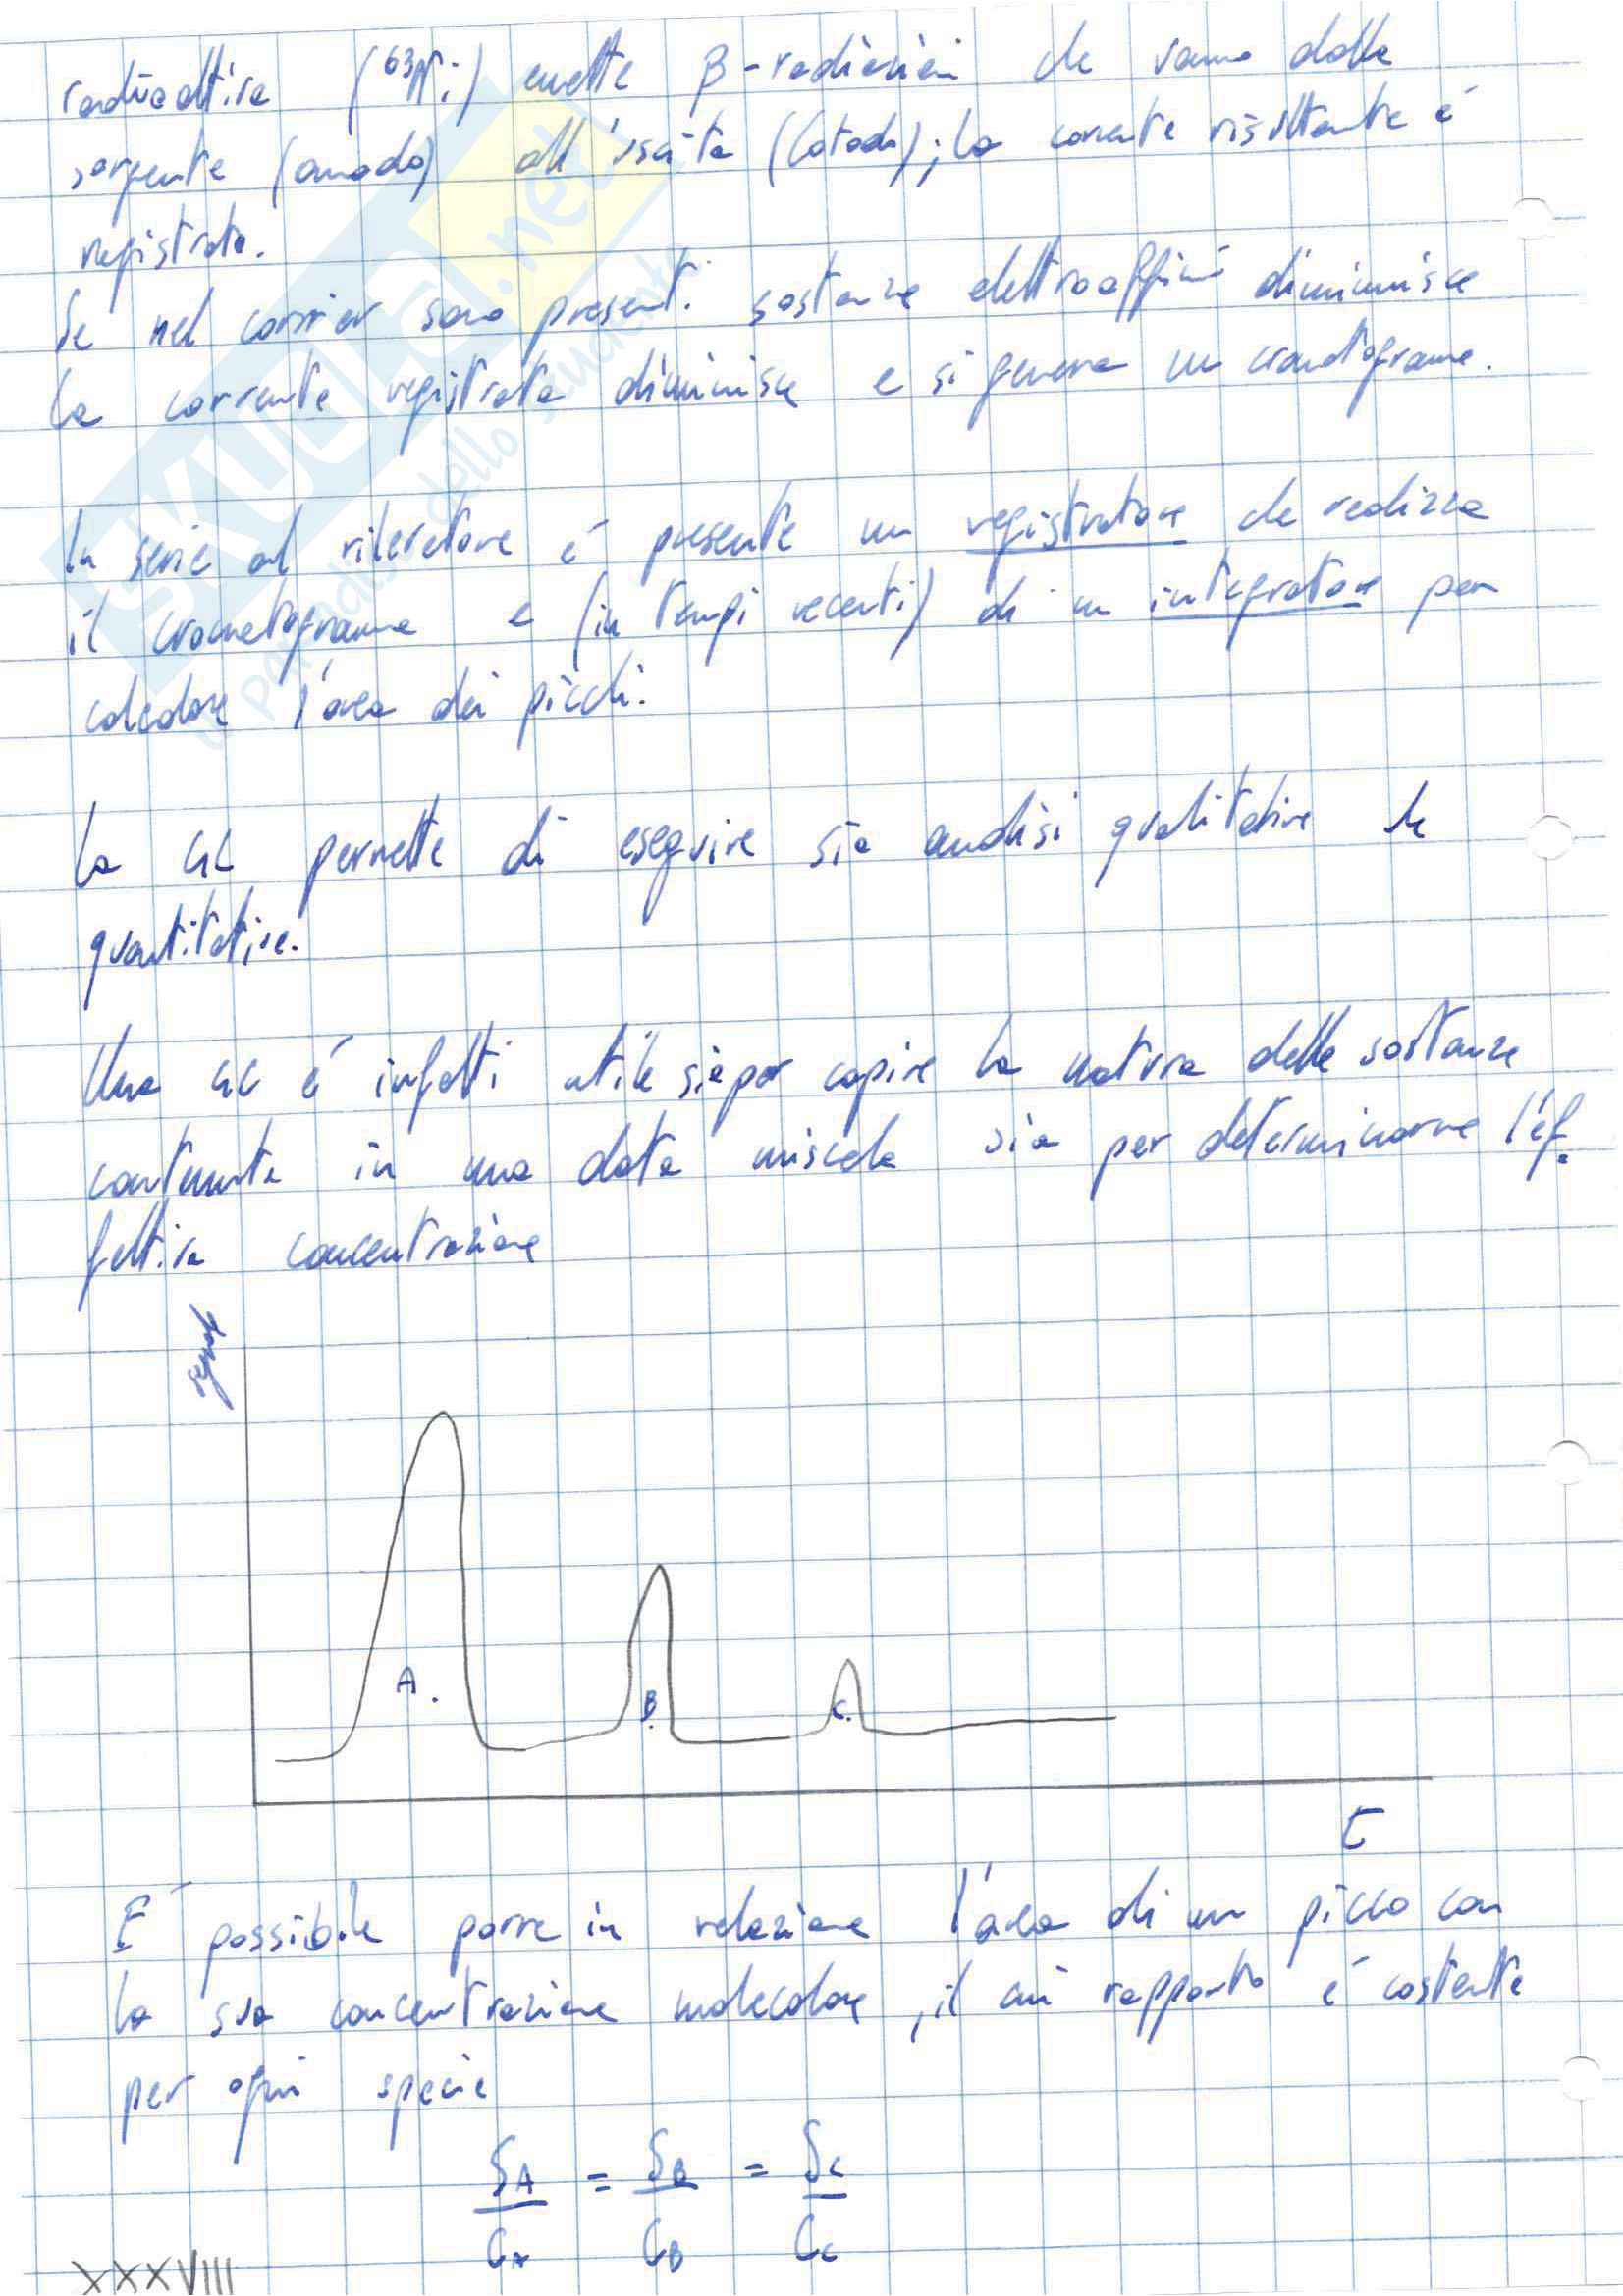 radioattiva (⁶³Ni) emette β-radiazioni che vanno dalla
sorgente (anodo) all'uscita (catodo); la corrente risultante é
registrata.
Se nel carrier sono presenti sostanze elettroaffini diminuisce
la corrente registrata diminuisce e si genera un cromatogramma.
In serie al rilevatore é presente un registratore che realizza
il cromatogramma e (in tempi recenti) di un integratore per
calcolare l'area dei picchi.
La GC permette di eseguire sia analisi qualitative che
quantitative.
Una GC é infatti utile sia per capire la natura delle sostanze
contenute in una data miscela sia per determinarne l'ef
fettiva concentrazione
segnale
A.
B.
C.
t
E' possibile porre in relazione l'area di un picco con
la sua concentrazione molecolare, il cui rapporto é costante
per ogni specie
S_A = S_B = S_C
C_A C_B C_C
XXXVIII
SKUOLA.net
il paradiso dello studente